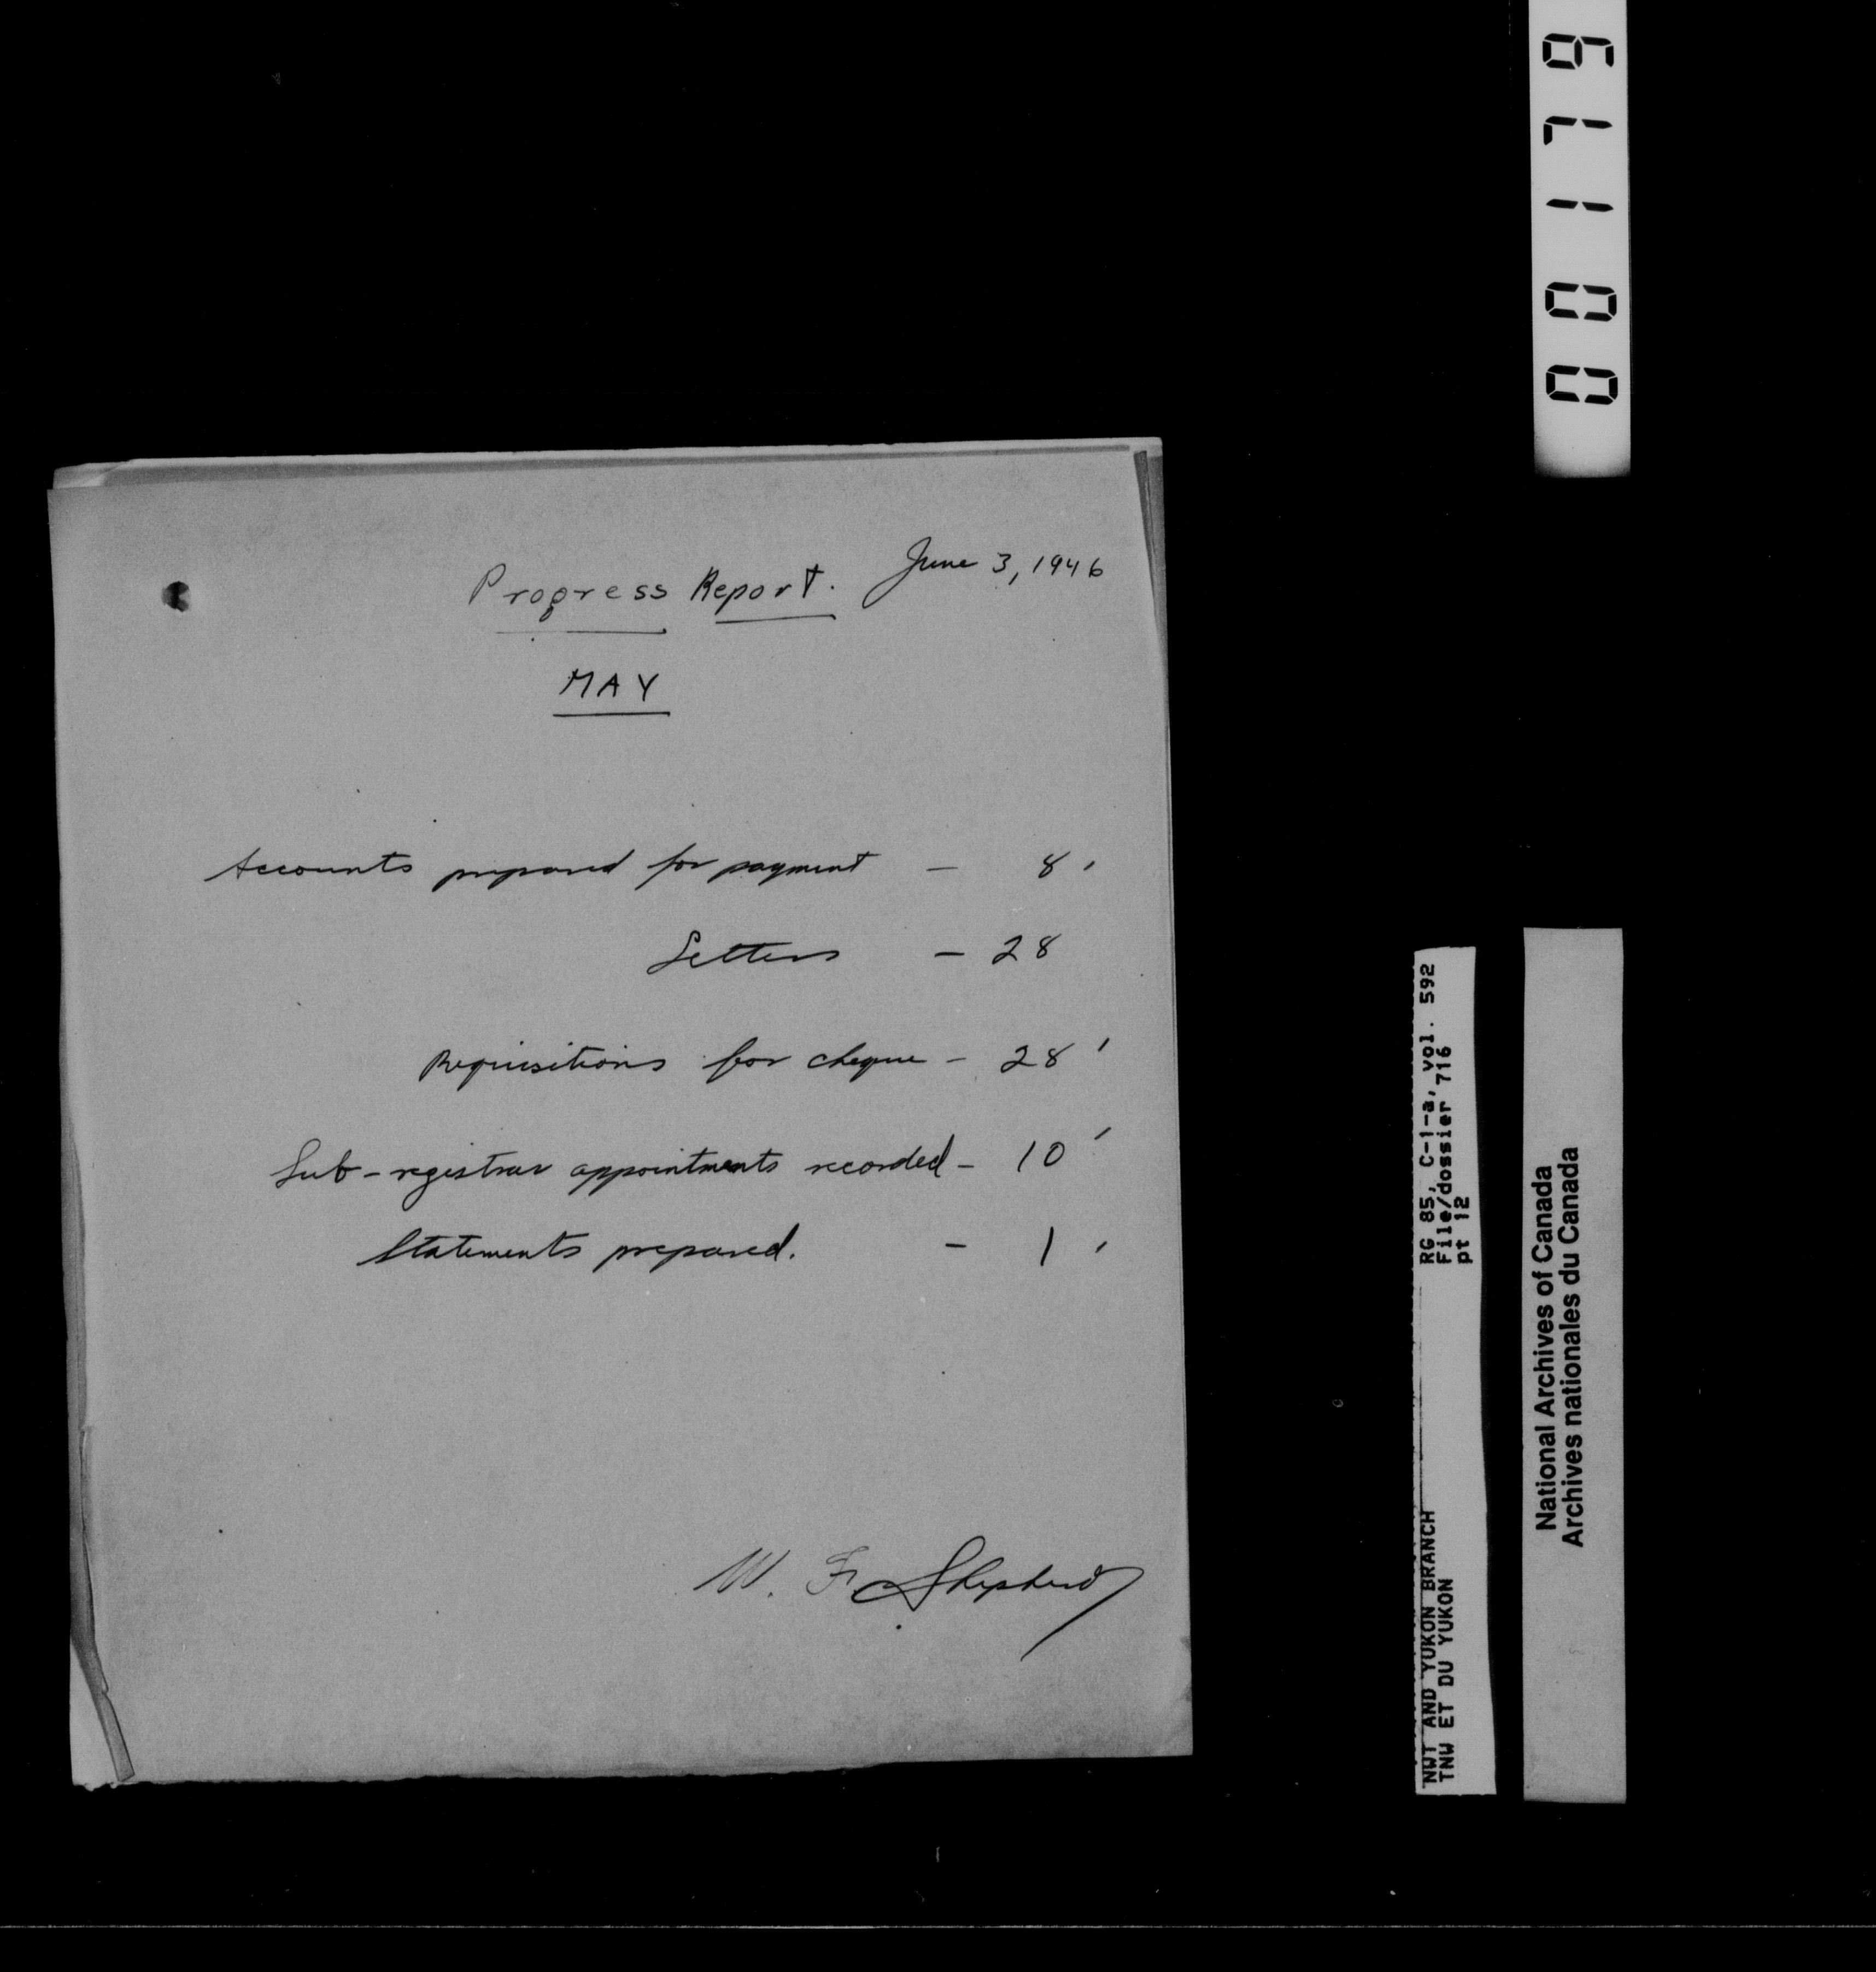 June 3, 1946
Progress Report.
MAY
Accounts prepared for payment - 8
Letters - 28
Requisitions for cheque - 28
Sub-registrar appointments recorded - 10
Statements prepared. - 1
W. F. Shepherd
00179
RG 85, C-1-a, vol. 592
File/dossier 716
pt 12
NWT AND YUKON BRANCH
TNW ET DU YUKON
National Archives of Canada
Archives nationales du Canada